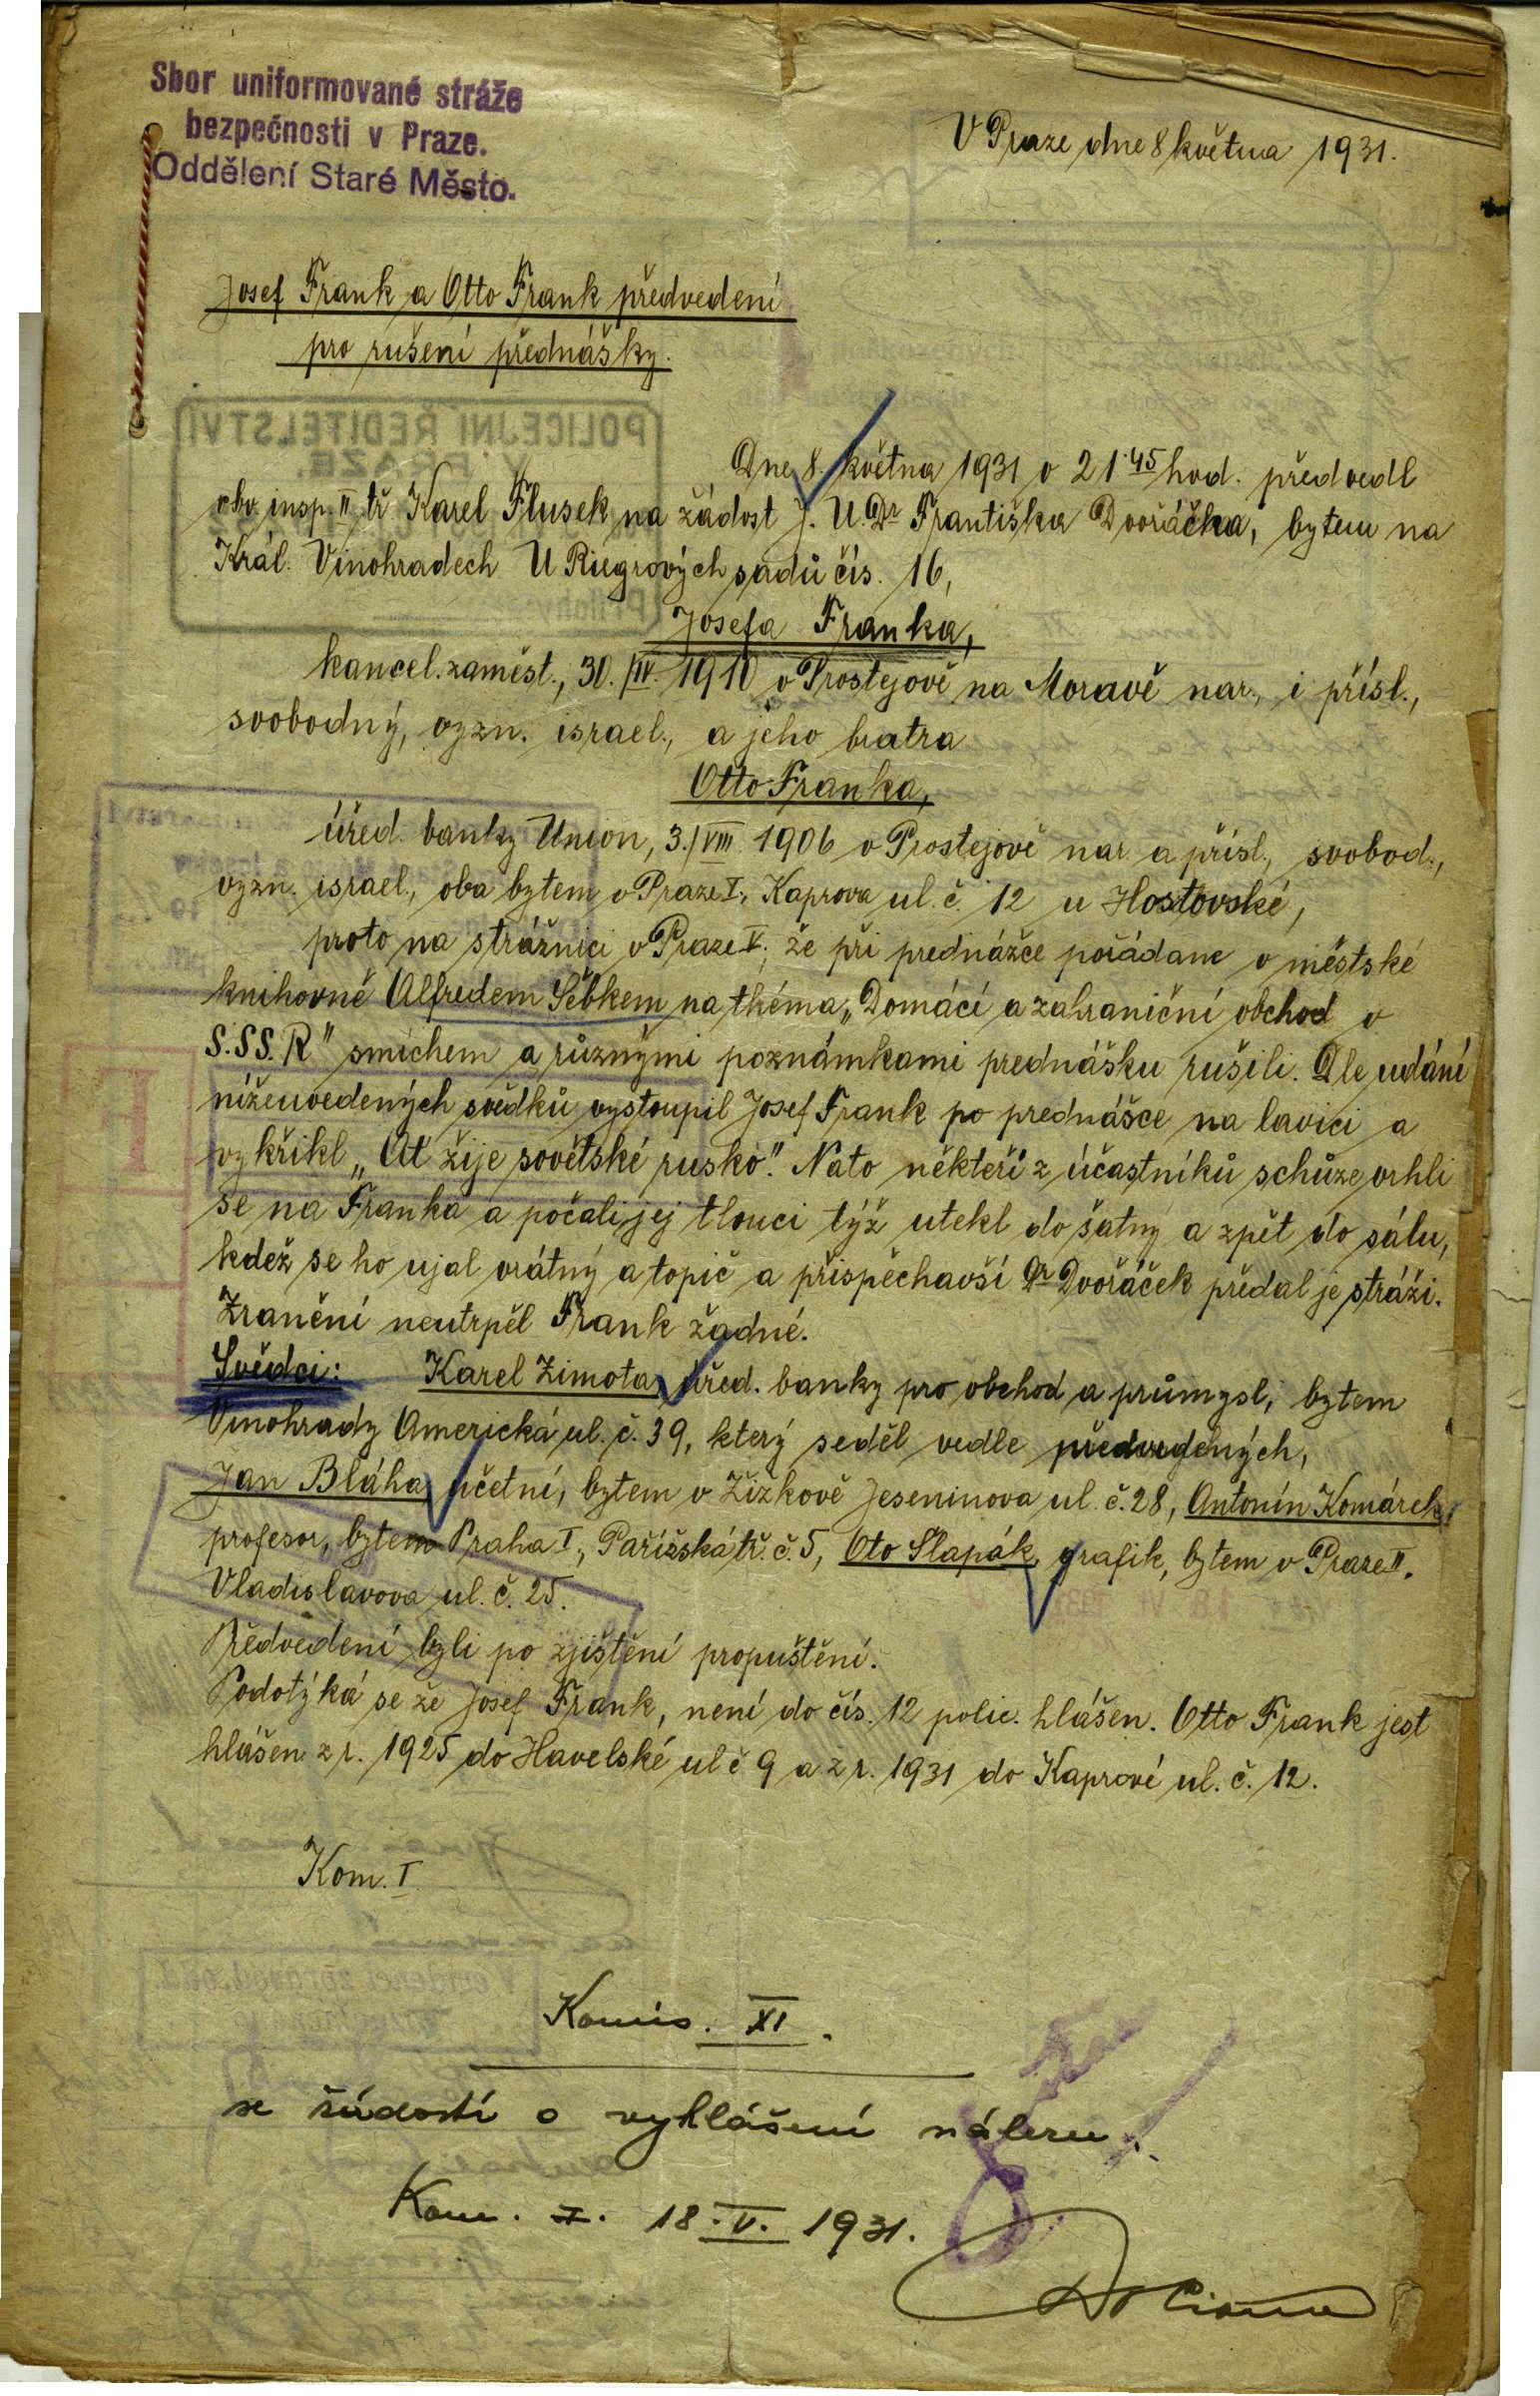 Sbor uniformované stráže
bezpečnosti v Praze.
Oddělení Staré Město.
V Praze dne 8 května 1931.
Josef Frank a Otto Frank předvedeni
pro rušení přednášky.
POLICEJNÍ ŘEDITELSTVÍ
V PRAZE.
Dne 8. května 1931 v 21 45 hod. předvedl
obv. insp. II tř Karel Flusek na žádost J. U. Dr Františka Dvořáčka, bytem na
Král. Vinohradech U Riegrových sadů čís. 16,
Josefa Franka,
kancel. zaměst., 30./IV. 1910 v Prostejově na Moravě nar., i přísl.,
svobodný, vyzn. israel., a jeho bratra
Otto Franka,
úřed. banky Union, 3./VIII 1906 v Prostejově nar. a přísl., svobod.,
vyzn. israel., oba bytem v Praze I., Kaprova ul. č. 12 u Hostovské,
proto na strážnici v Praze V., že při prednážce pořádane v městské
knihovně Alfredem Šébkem na théma „Domácí a zahraniční obchod v
S.SS.R" smíchem a různými poznámkami prednášku rušili. Dle udání
níženvedených svědků vystoupil Josef Frank po prednášce na lavici a
vykřikl „Ať žije sovětské rusko". Nato někteří z účastníků schůze vrhli
se na Franka a počali jej tlouci týž utekl do šatný a zpět do sálu,
kdež se ho ujal vrátný a topič a přispěchavší Dr Dvořáček předal je stráži.
Zranění neutrpěl Frank žadné.
Svědci: Karel Zimota, úřed. banky pro obchod a průmysl, bytem
Vinohrady Americká ul. č. 39, který seděl vedle předvedených,
Jan Bláha, účetní, bytem v Žižkově Jeseninova ul. č. 28, Antonín Komárek,
profesor, bytem Praha I., Pařížská tř. č. 5, Oto Šlapák, grafik, bytem v Praze II.
Vladislavova ul. č. 25.
Předvedení byli po zjištění propuštění.
Podotýká se že Josef Frank, není do čís. 12 polic. hlášen. Otto Frank jest
hlášen z r. 1925 do Havelské ul č 9 a z r. 1931 do Kaprové ul. č. 12.
Kom. I
Komis. XI.
se žádostí o vyhlášení nálezu.
Kom. I. 18. V. 1931.